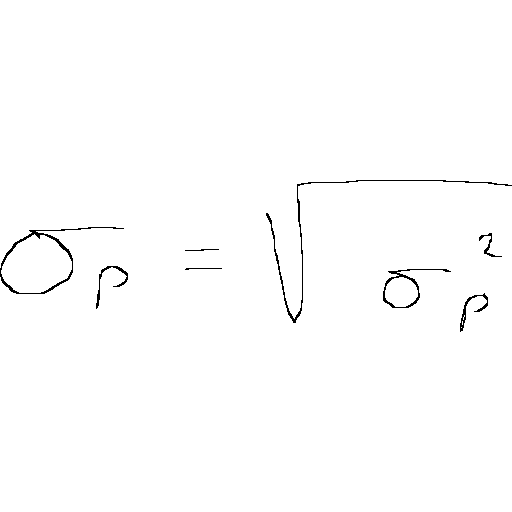 σ_p = √(σ_p^2)